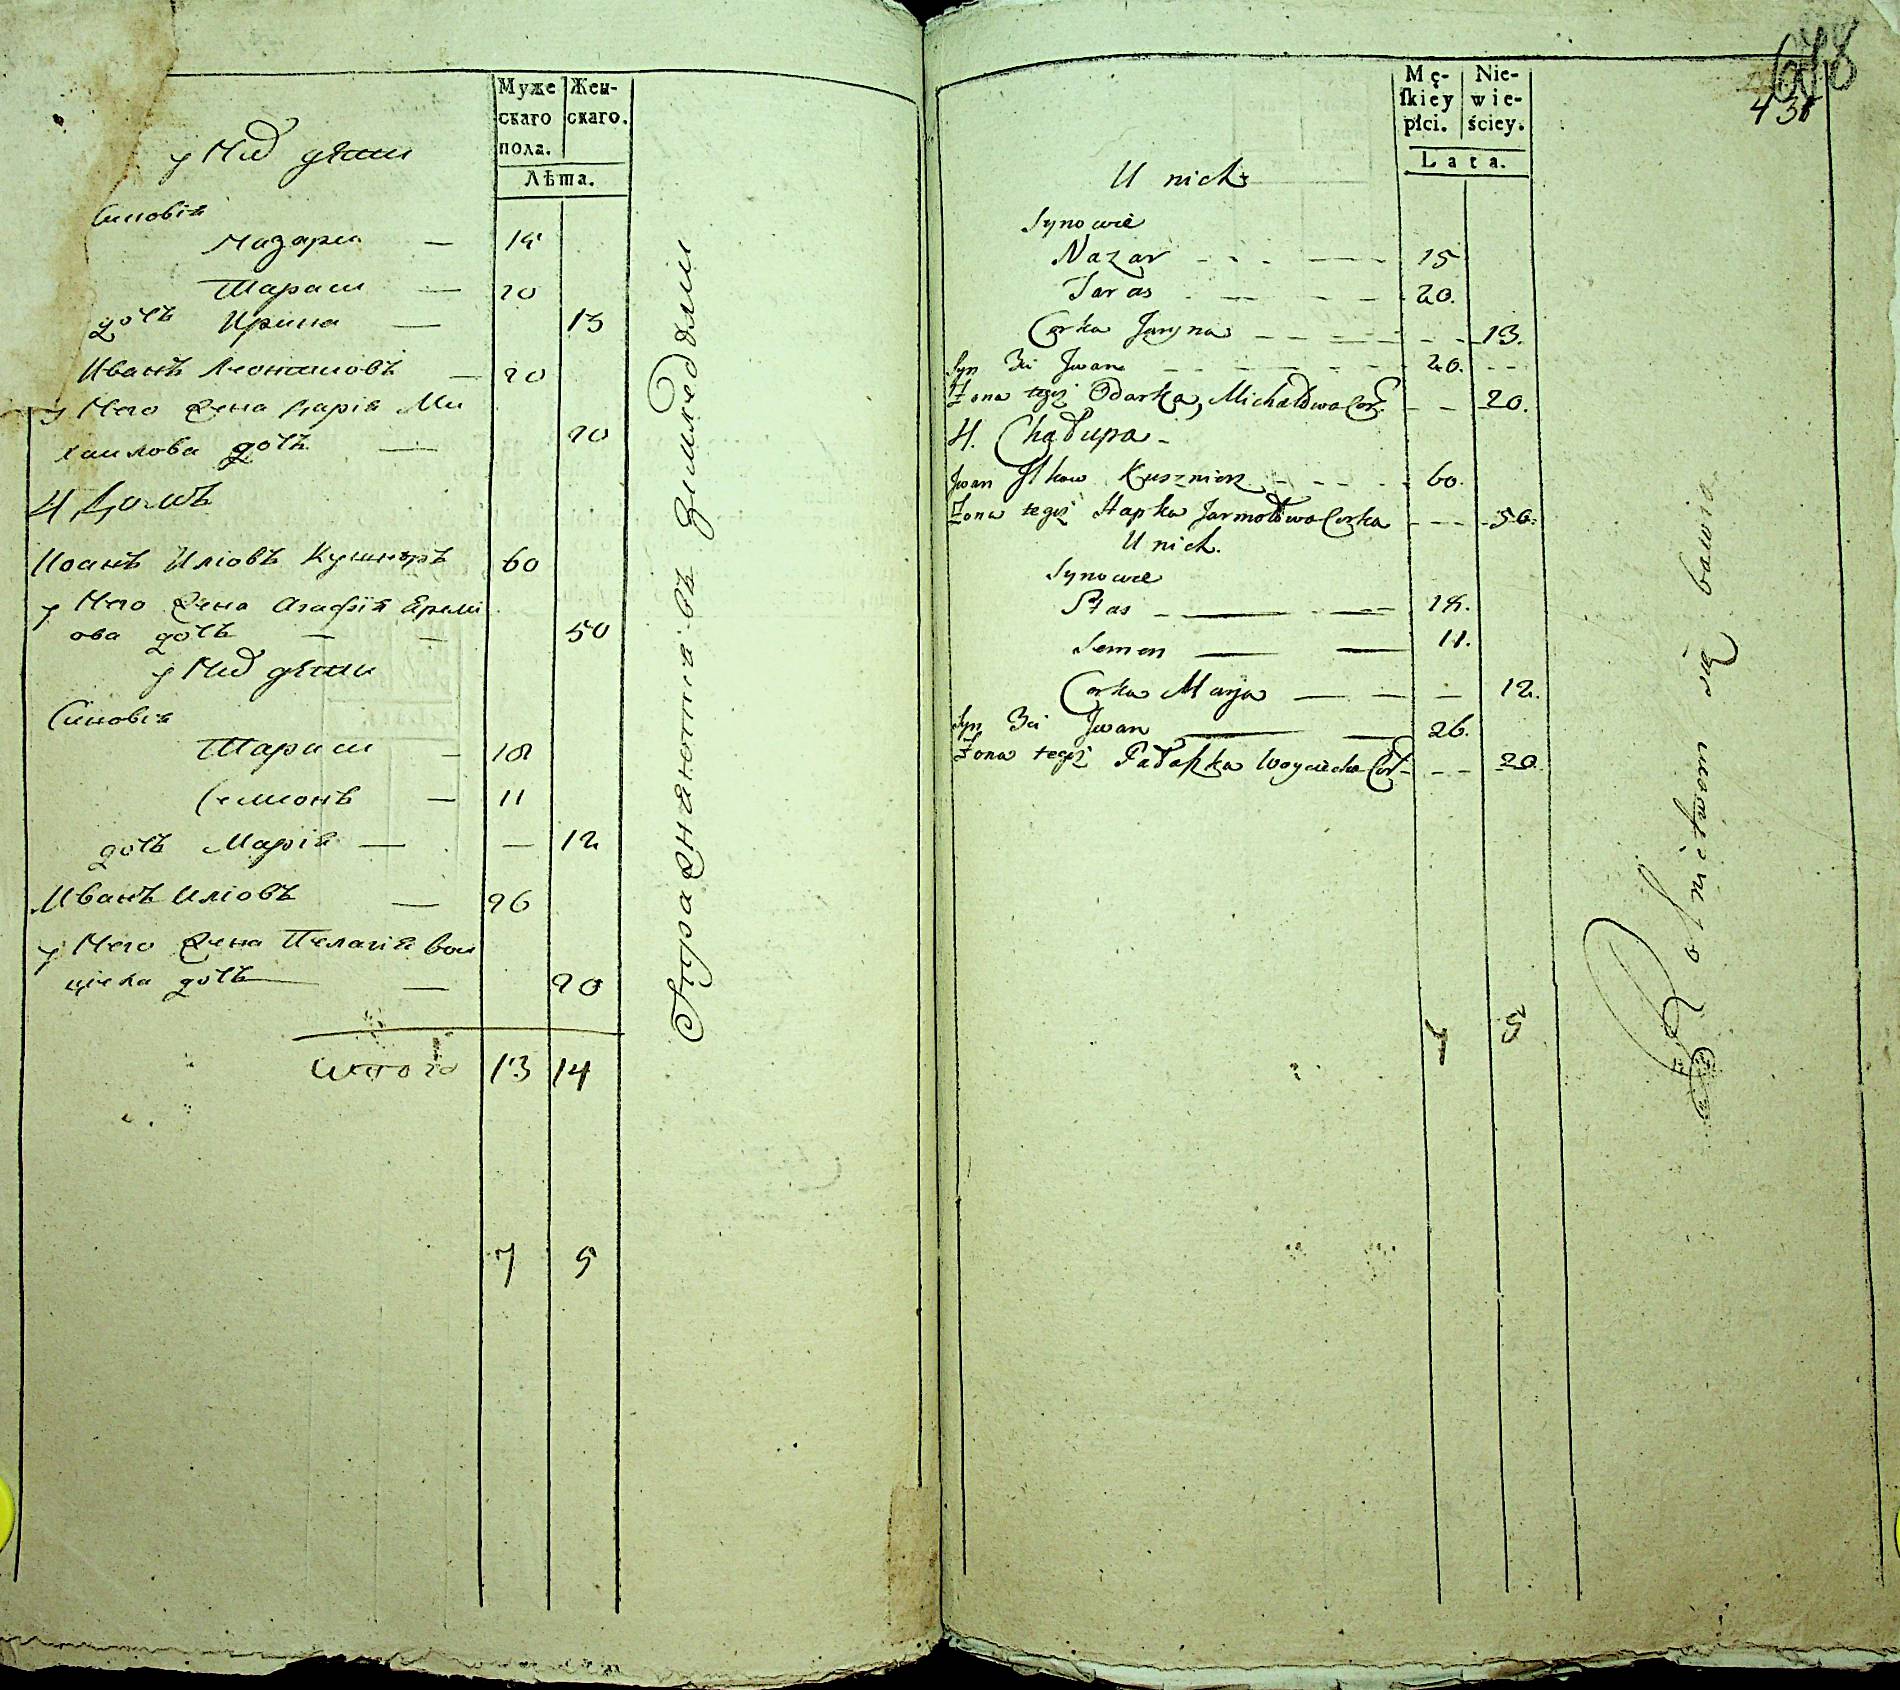 Муже скаго пола. Жен- скаго.
Лѣта.
у Них дѣти
Синовія
Назари — 15
Тараси — 20
дочъ Ирина — 13
Иванъ Леонтиовъ — 20
у Него жена Дарія Ми
хаилова дочъ — 20
4 Домъ
Иоанъ Иліовъ Кушнѣръ 60
у Него жена Агафія Ермлі
ова дочъ — — 50
у Них дѣти
Синовія
Тараси — 18
Семионъ — 11
дочъ Марія — — 12
Иванъ Иліовъ — 26
у Него жена Пелагія Вои
цѣха дочъ — 20
Итого 13 14
7 5
Упражняются въ Земледелии
678
436
Mę- skiey płci. Nie- wie- ściey.
Lata.
U nich
Synowie
Nazar 15
Taras 20.
Corka Jaryna 13.
Syn Iwan 20.
Żona tegoż Odarka, Michałowa Cor: 20.
4. Chałupa
Jwan Jlkow Kusznierz 60.
Żona tegoż Hapka Jarmołowa Corka 50.
U nich.
Synowie
Stas 18.
Semen 11.
Corka Marja 12.
Syn Iwan 26.
Żona tegoż Pałaszka Woyciecha Cor 20.
7 5
Rolnictwem się bawią